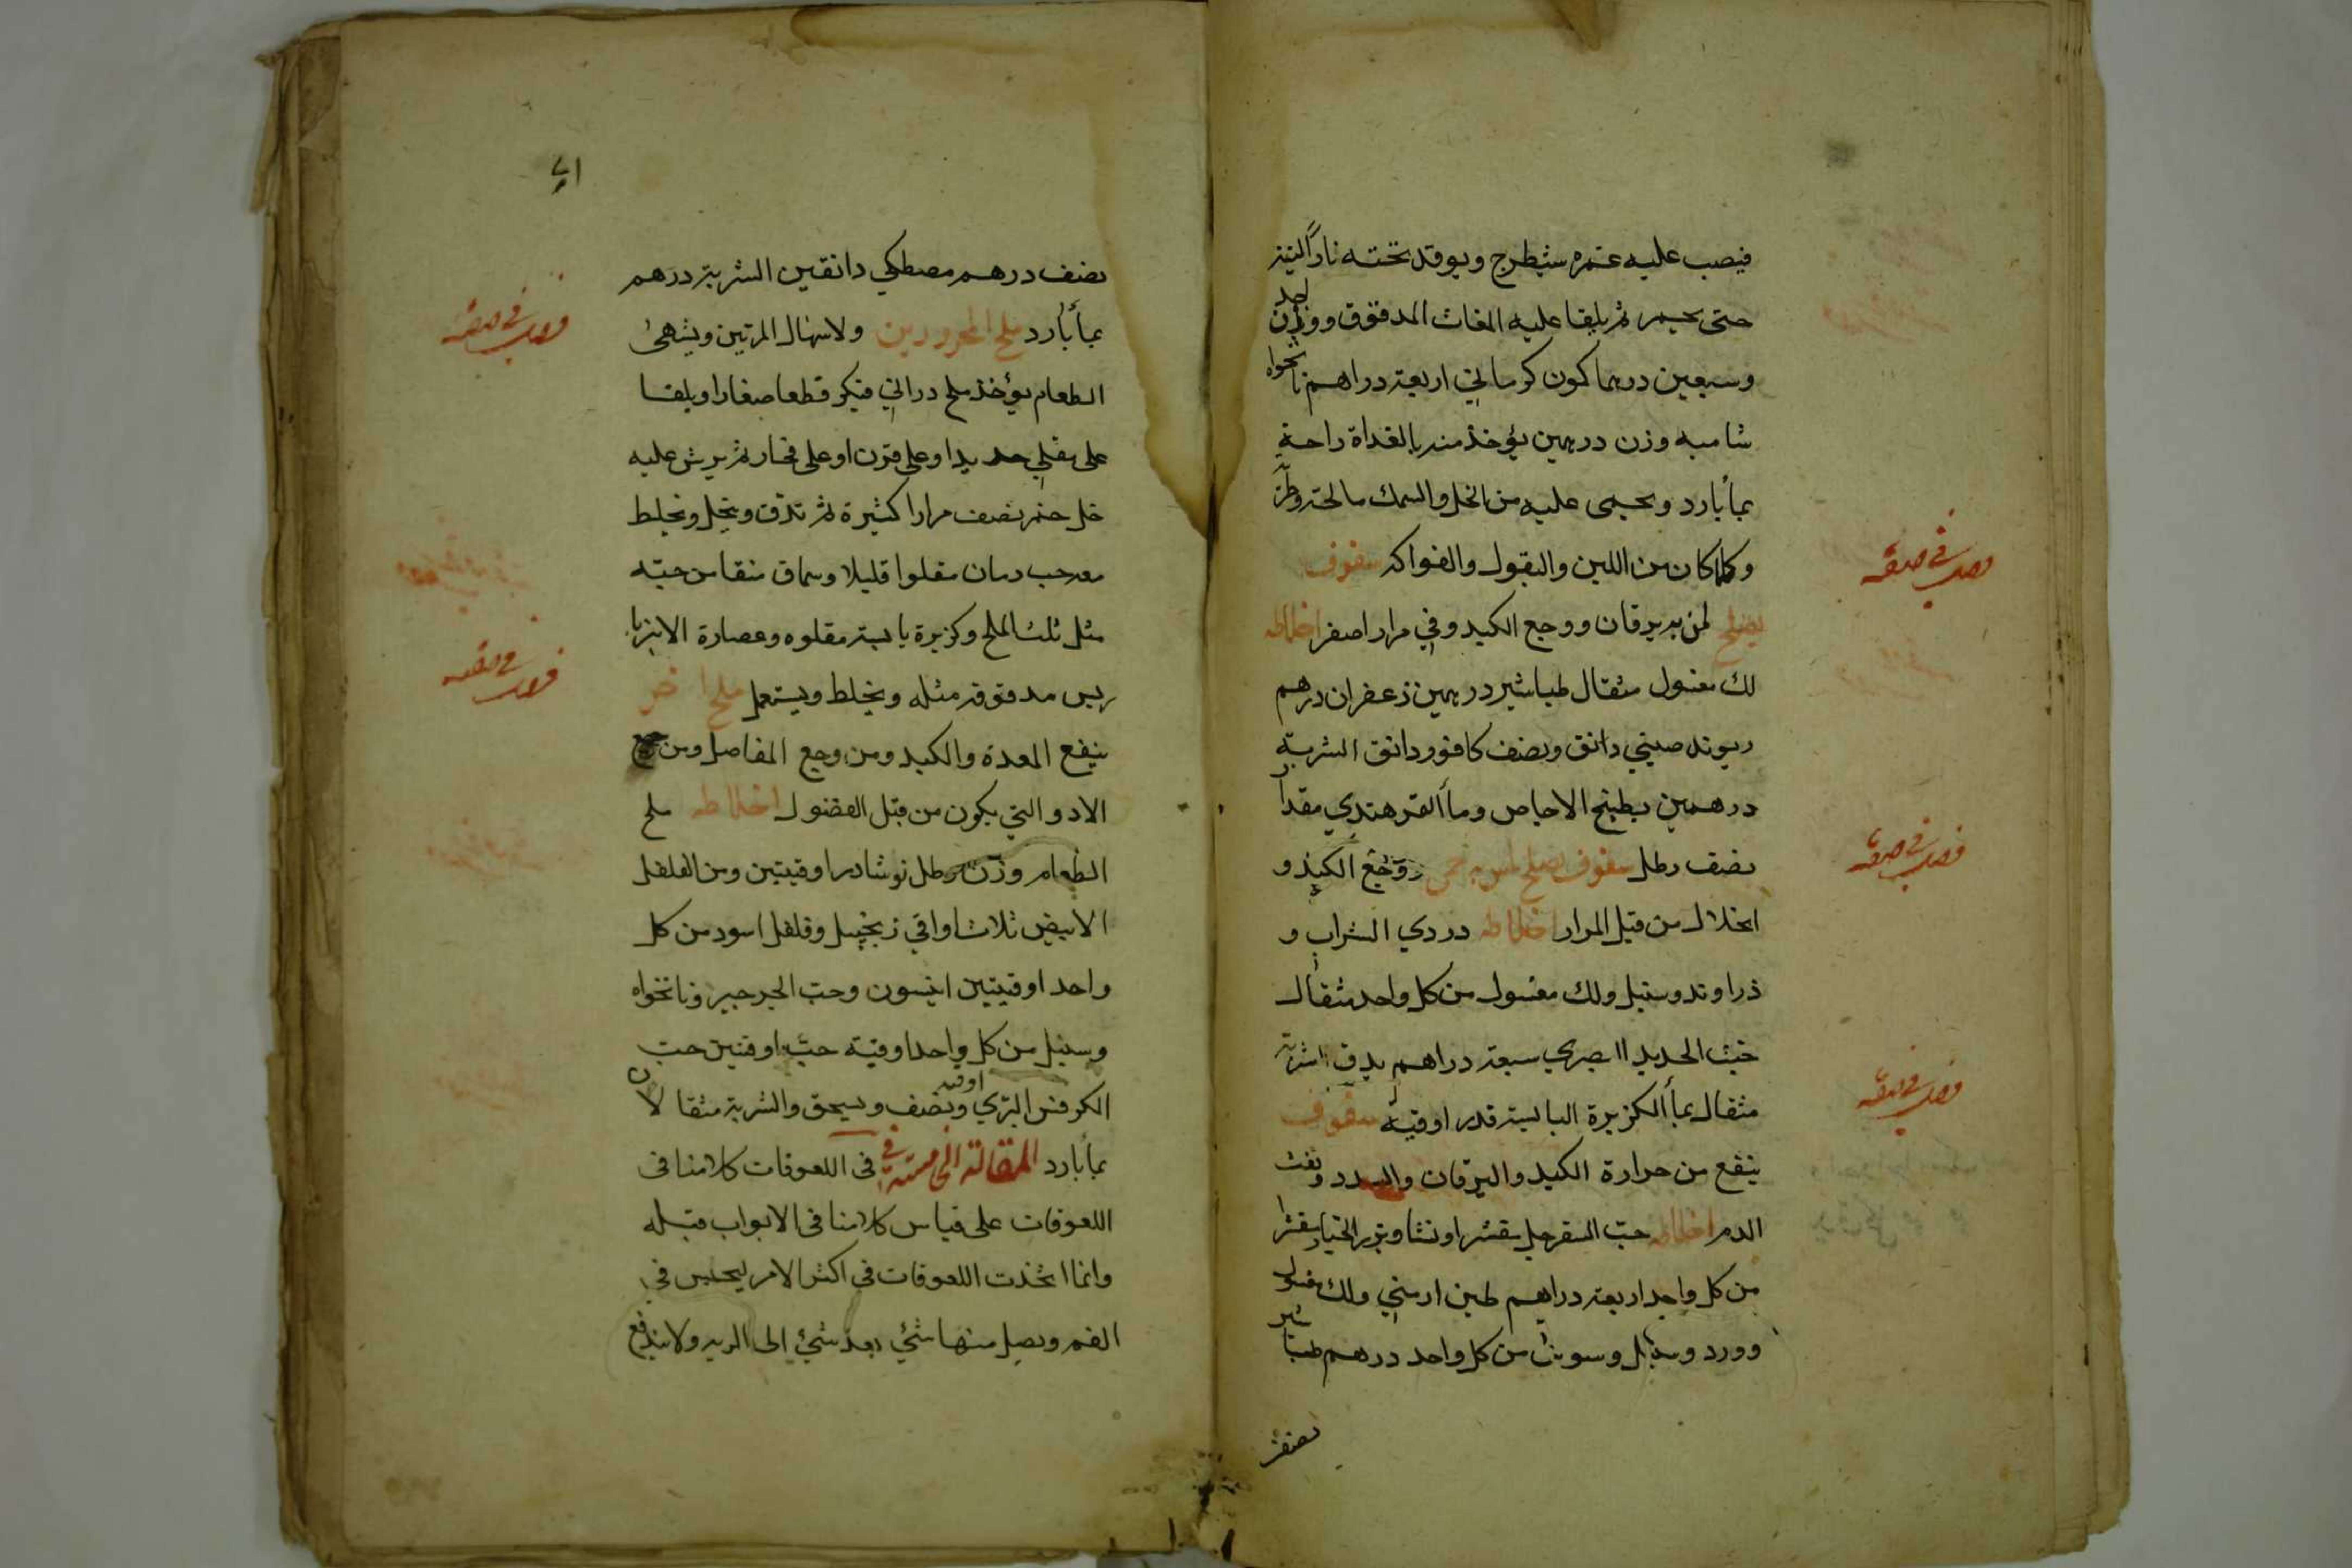 فيصب عليه غمره شيطرج ويوقد تحته ناراً لينة
حتى يحمر ثم يلقا عليه المغاث المدقوق ووزن احد
وسبعين درهما كمون كرماني اربعة دراهم نانخواه
شاميه وزن درهمين يؤخذ منه بالغداة راحة
بمأ بارد ويحمى عليه من الخل والسمك مالحه وطريّه
وكلما كان من اللبن والبقول والفواكه سفوف
يصلح لمن به يرقان ووجع الكبد وفي مرار اصفر اخلاطه
لك مغسول مثقال طباشير درهمين زعفران درهم
ريوند صيني دانق ونصف كافور دانق الشربة
درهمين بطبيخ الاجاص ومأ التمر هندي مقدار
نصف رطل سفوف يصلح لمن به حمى ووجع الكبد و
انحلال من قبل المرار اخلاطه دردي الشراب و
ذراوند وسنبل ولك مغسول من كل واحد مثقال
خبث الحديد البصري سبعة دراهم يدق الشربة
مثقال بمأ الكزبرة اليابسة قدر اوقية سفوف
ينفع من حرارة الكبد واليرقان والسدد ونفث
الدم اخلاطه حبّ السفرجل مقشرا ونشا وبزر الخيار مقشرا
من كل واحد اربعة دراهم طين ارمني ولك مغسول
وورد وسنبل وسوس من كل واحد درهم طباشير
نصف
نصف درهم مصطكي دانقين الشربة درهم
بمأ بارد ملح المحرورين ولاسهال المرتين ويشهى
الطعام يؤخذ ملح دراني فيكسر قطعا صغارا ويلقا
على مقلي حديد او على قرن او على فخار ثم يرش عليه
خل خمر نصف مرارا كثيرة ثم تدق وينخل ويخلط
معه حب رمان مقلوا قليلا وسماق منقا من حبّه
مثل ثلث الملح وكزبرة يابسة مقلوه وعصارة الانبربا
ريس مدقوقة مثله ويخلط ويستعمل ملح اخر
ينفع المعدة والكبد ومن وجع المفاصل ومن جميع
الادوا التي يكون من قبل الفضول اخلاطه ملح
الطعام وزن رطل نوشادر اوقيتين ومن الفلفل
الابيض ثلاث اواقي زنجبيل وفلفل اسود من كل
واحد اوقيتين انيسون وحبّ الجرجير ونانخواه
وسنبل من كل واحد اوقية حبّ اوقتين حب
الكرفس البرّي اوقيه ونصف ويسحق والشربة مثقالان
بمأ بارد المقالة الخامسة في في اللعوقات كلامنا فى
اللعوقات على قياس كلامنا فى الابواب قبله
وانما اتخذت اللعوقات في اكثر الامر ليحلس في
الفم ويصل منها شئ بعد شئ الى الريه ولا يندفع